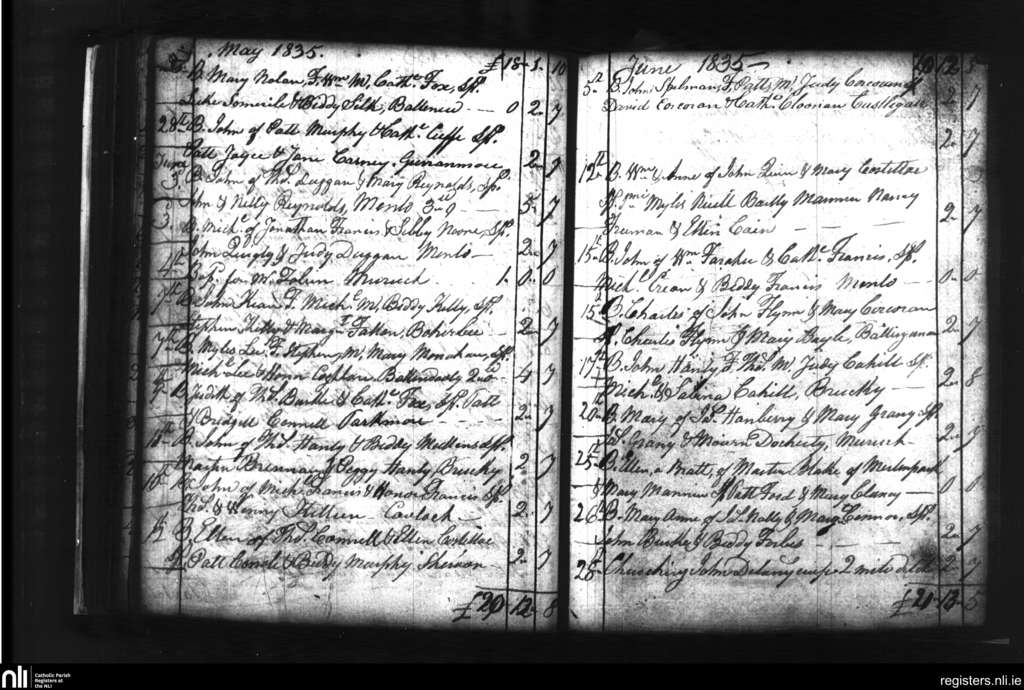 May 1835. £18-1-10
B. Mary Nolan, F. Wm M. Cathe. Fox, Sp.
Luke Somerile & Biddy Silk, Ballenew — 0 2 7
28th B. John of Patt Murphy & Cathe. Cuffe Sp.
Patt Joyce & Jane Carney, Gurranmore 2 7
June
3 B. John of Thos. Duggan & Mary Reynolds, Sp.
John & Nelly Reynolds, Menlo 5 7
3 B. Mich. of Jonathan Francis & Sibby Noone, Sp.
John Quigly & Judy Duggan Menlo — 2 7
4th for Wm. Murouch 1-0-0
7th B. John Kean F. Michl. M. Biddy Kelly, Sp.
Stephen & Margt. Fallon, Boherbee — 2 7
7th B. Myles Lee F. Stephen, M. Mary Monahan, Sp.
Mich Lee & Honor Ballindooly 4 7
7th B. Judith of Thos. Burke & Cathe. Fox, Sp. Patt
& Bridgett Connell Parkmore — 2 7
10th B. John of Thos. Hanly & Biddy Sp.
Martin Brennan & Peggy Hanly Brucky 2 7
10th B. John of Michl. Francis & Honor Francis Sp.
Thos. & Winny Killeen Coolach 2 7
B. Ellen of Thos. Connell & Ellen Costelloe
Sp. Patt & Biddy Murphy 2 7
£20-12-8
June 1835 — 20 12
5th B. John Spelman F. Patt, M. Judy Corcoran Sp.
David Corcoran & Cathe. Cloonan Castlegar 2 7
2 7
12th B. Wm. & Anne of John Quin & Mary Costelloe
Myles Niell Bartly Mannin Nancy
Freeman & Ellen Cain — 2 7
15th B. John of Wm. Faraher & Cathe. Francis, Sp.
Michl. Crean & Biddy Francis Menlo — 0-0
15 B. Charles of John Flynn & Mary Corcoran
Sp. Charles Flynn & Mary Boyle, 2 7
17th B. John Hanly F. Thos. M. Judy Cahill Sp.
Michl. & Cahill, Brucky 2 8
20th B. Mary of Js. Hanbery & Mary Grany Sp.
Js. Grany & Docherty, Murouch 2 7
25th B. Ellen, a Bratt, of Martin Blake of Merlinpark
& Mary Mannin Sp. Patt Ford & Mary Clancy — 0 0
26th B. Mary Anne of Js. Nally & Mary Connor, Sp.
John Burke & Biddy Forbes — 2 7
28th Churching John Delany 2 7
£20-13-5
nli
Catholic Parish
Registers at
the NLI
registers.nli.ie